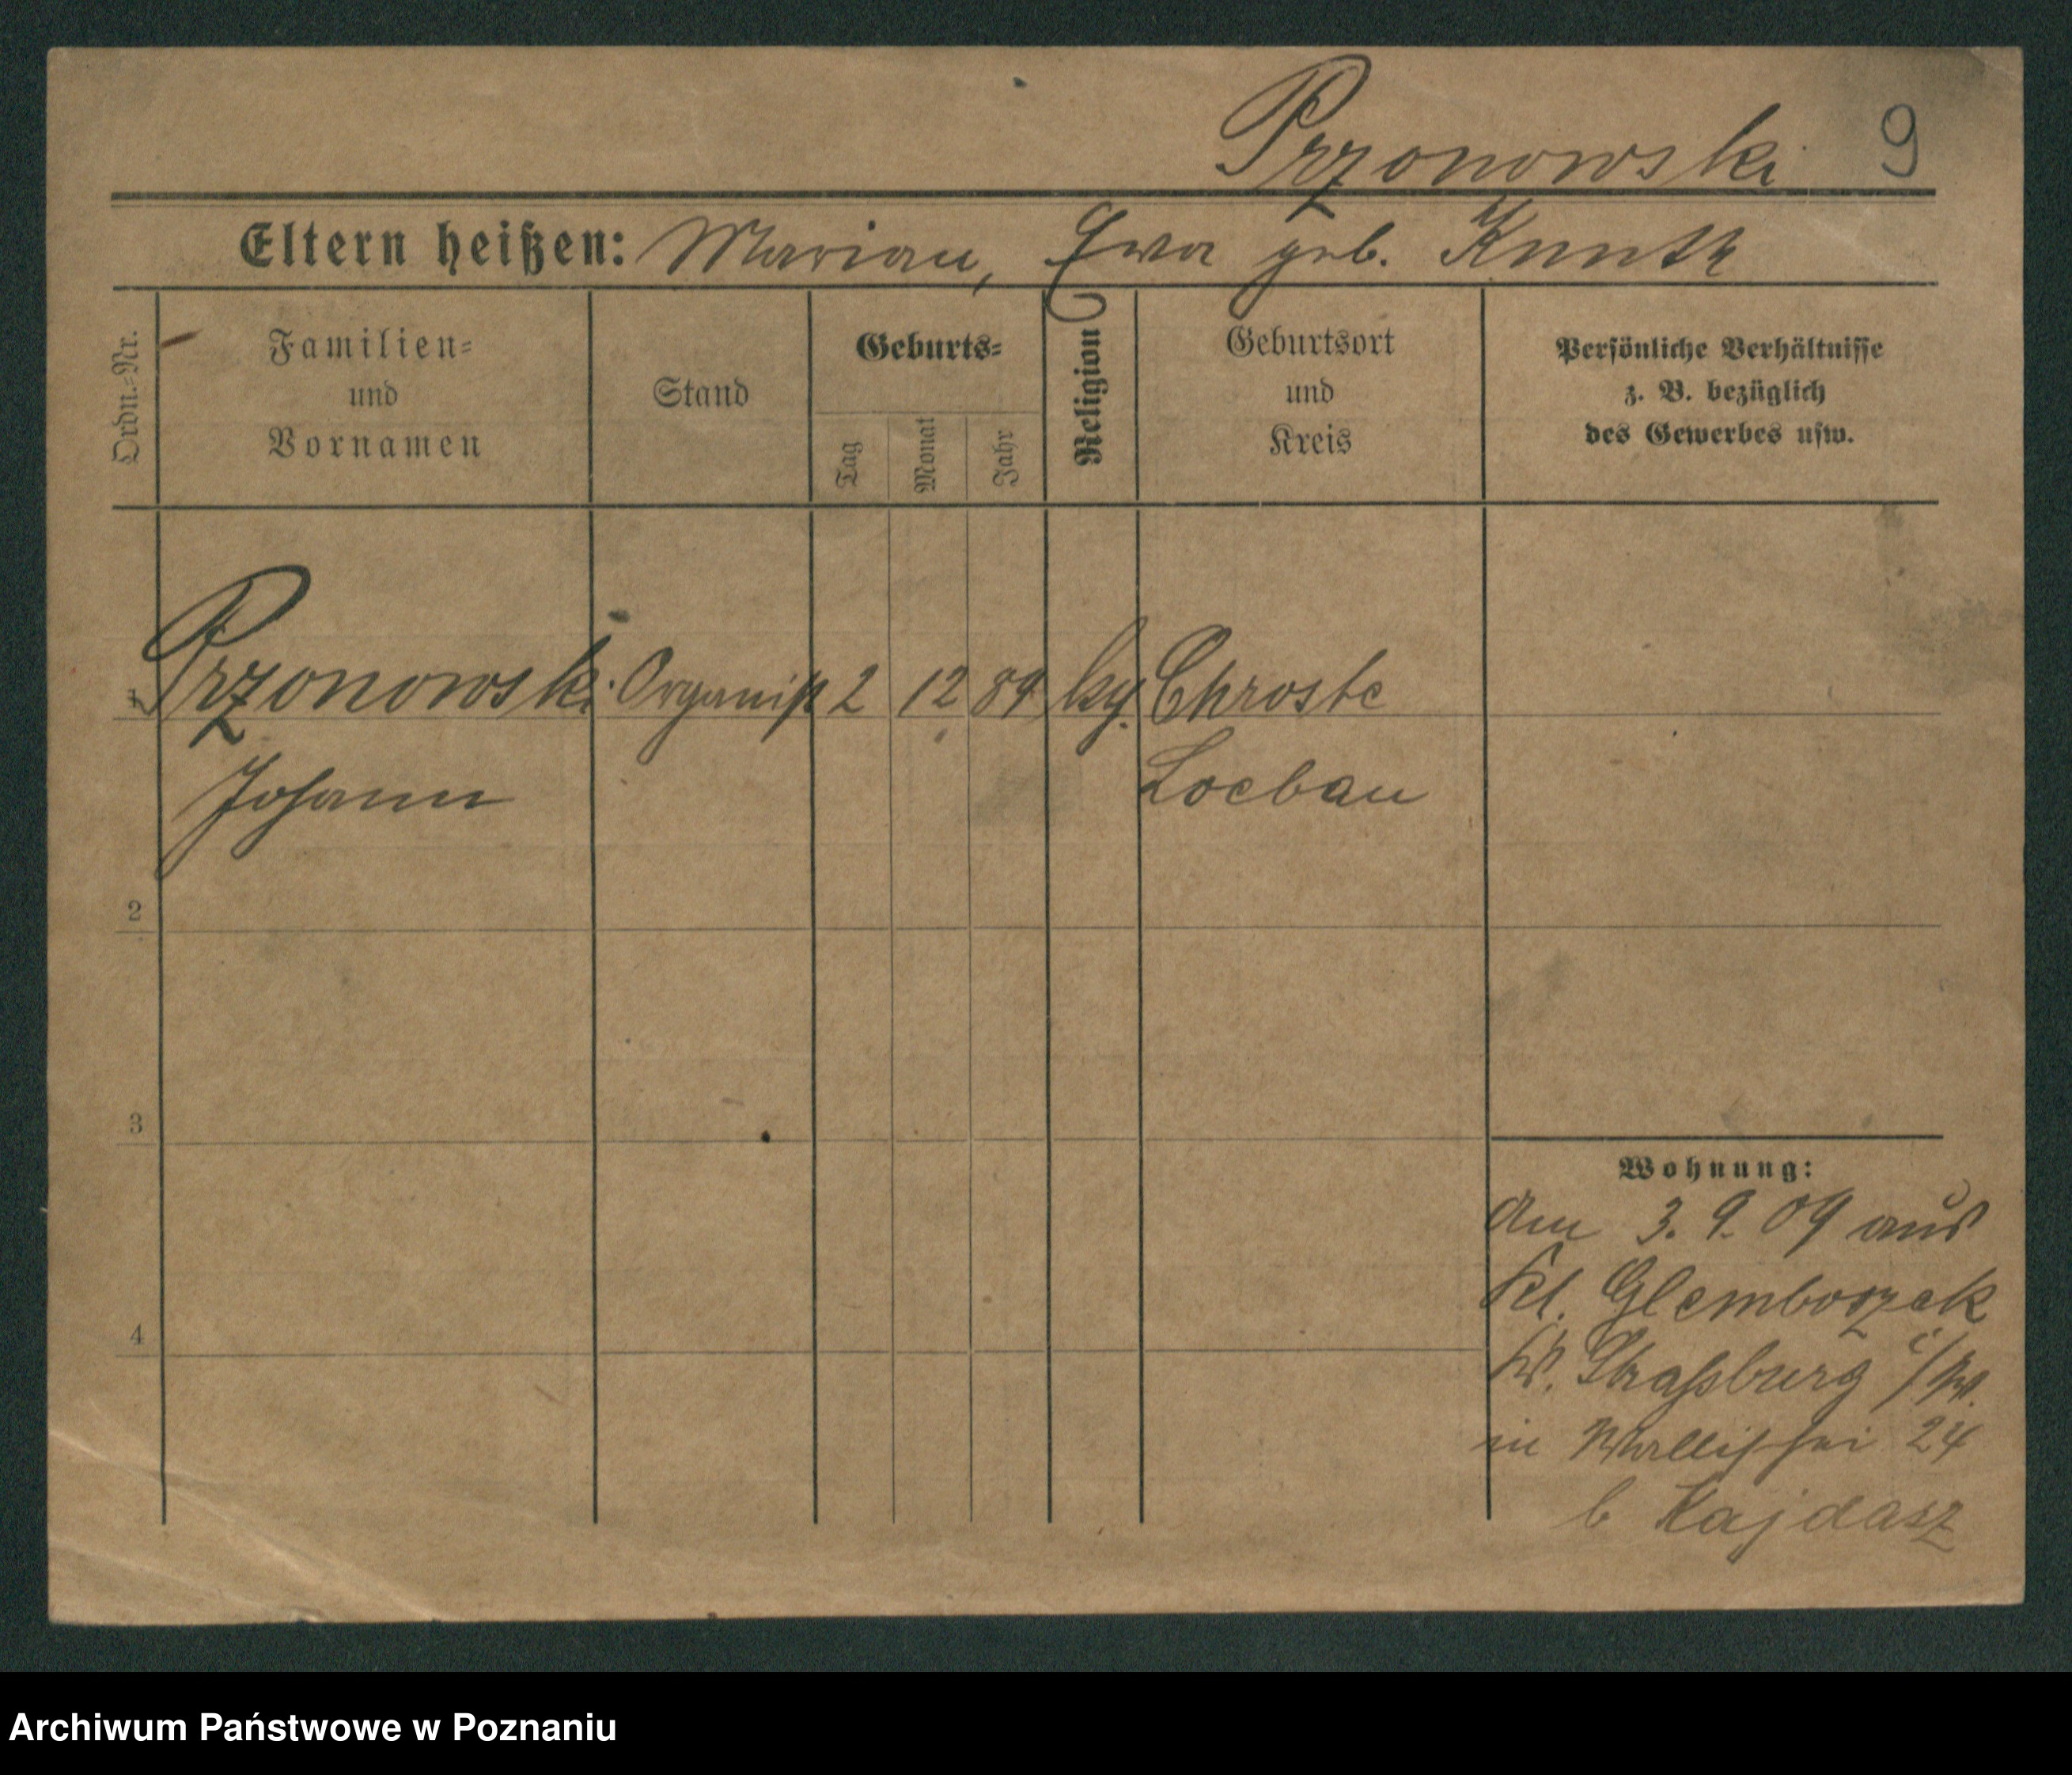 Przonowski 9
Eltern heißen: Marian, Ewa geb. Knuth
Ordn.-Nr.
Familien=
und
Vornamen
Stand
Geburts=
Tag
Monat
Jahr
Religion
Geburtsort
und
Kreis
Persönliche Verhältnisse
z. B. bezüglich
des Gewerbes usw.
1 Przonowski Organist 2 12 89 kg. Chroste
Johann Loebau
2
3
4
Wohnung:
Am 3. 9. 09 aus
Kl. Glemboszek
Kr. Straßburg i/W.
in Wallischei 24
b Kajdasz
Archiwum Państwowe w Poznaniu